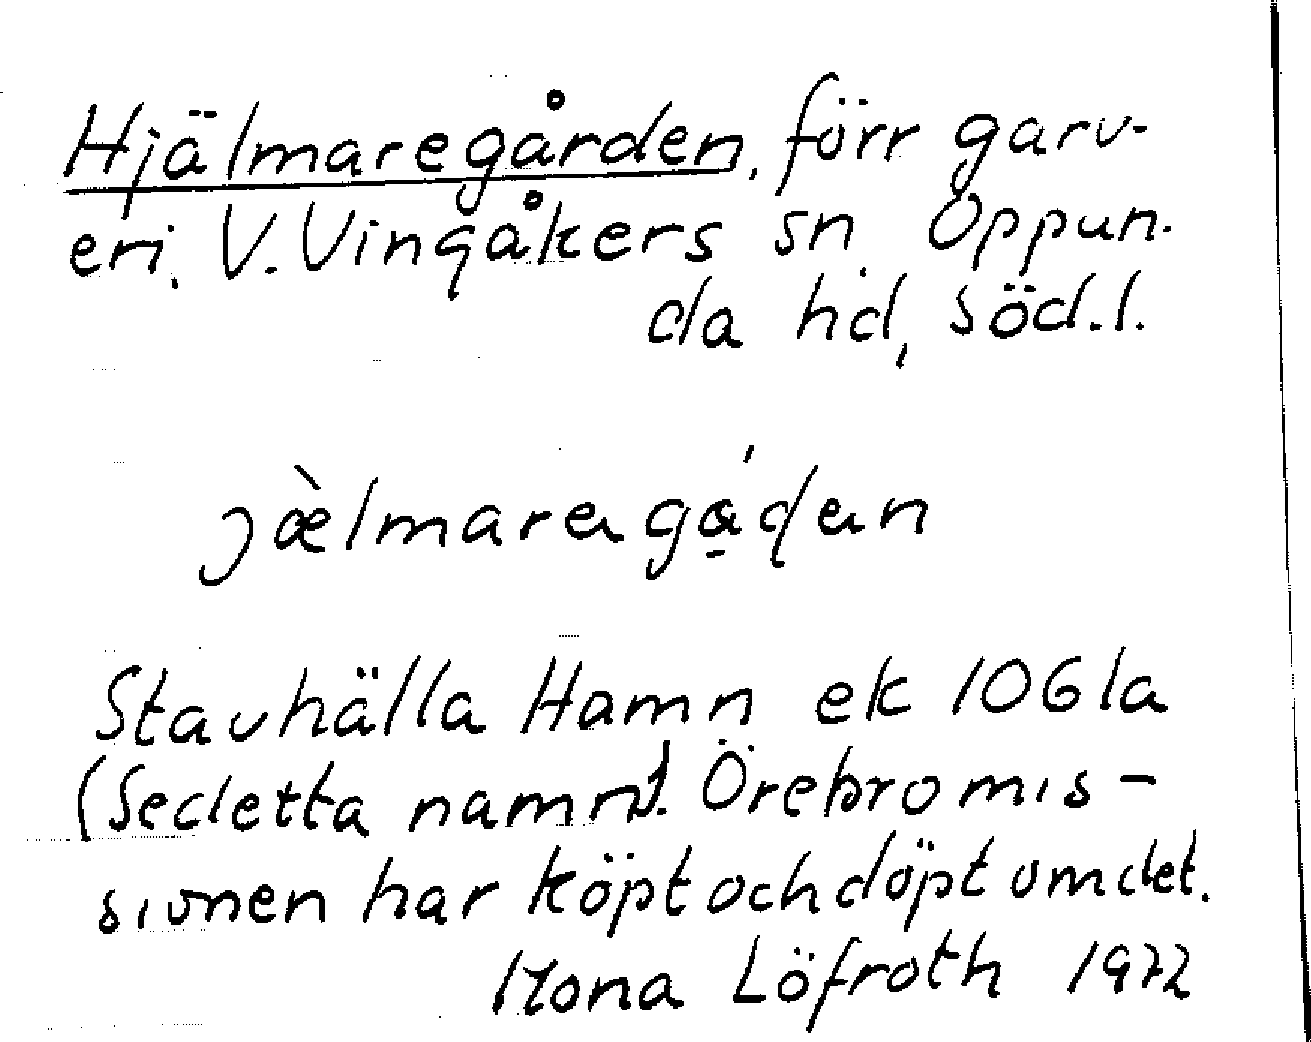 Hjälmaregården, förr garv-
eri, V. Vingåkers sn Oppun-
da hd, Söd.l.
jæ̀lmaregá̱den
Stavhälla Hamn ek 1061a
(Se detta namn). Örebromis-
sionen har köpt och döpt om det.
Mona Löfroth 1972